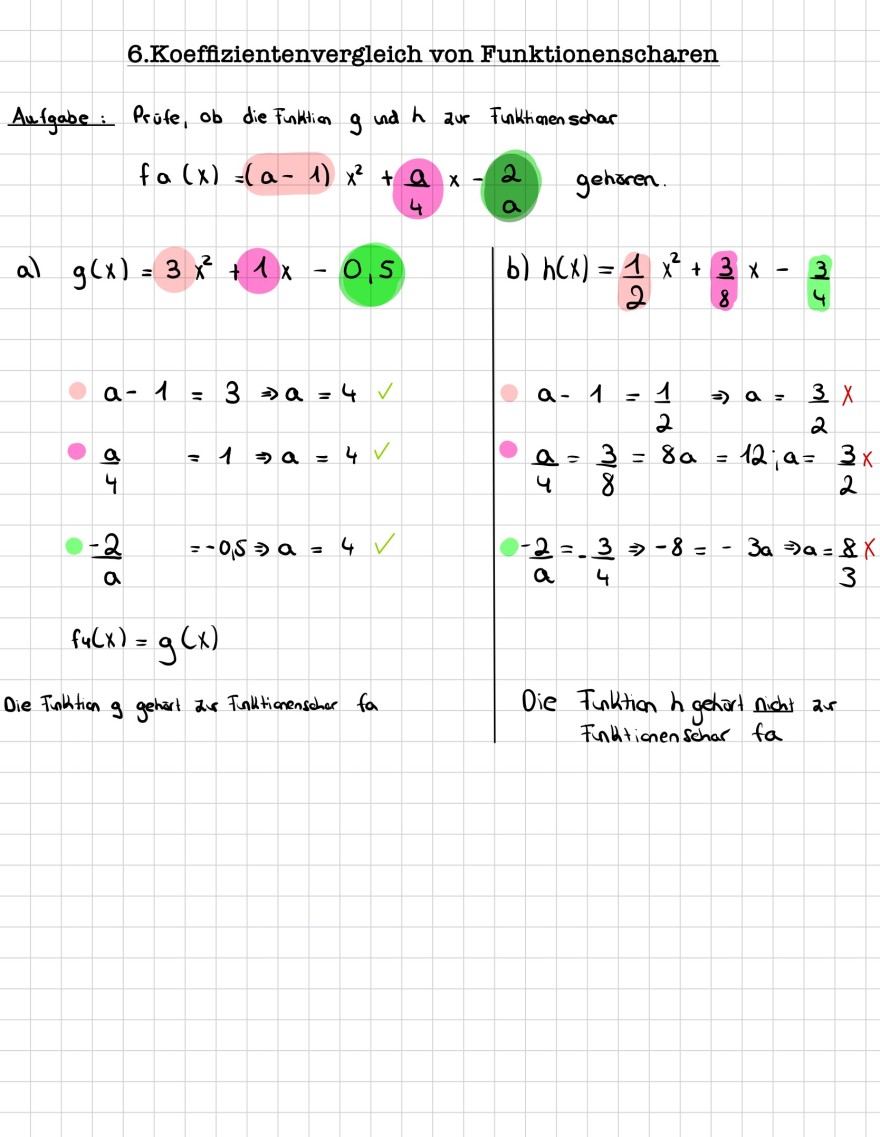 6.Koeffizientenvergleich von Funktionenscharen
Aufgabe: Prüfe, ob die Funktion g und h zur Funktionenschar
fa(x) = (a - 1) x² + a/4 x - 2/a gehören.
a) g(x) = 3x² + 1x - 0,5
a - 1 = 3 ⇒ a = 4 ✓
a/4 = 1 ⇒ a = 4 ✓
-2/a = -0,5 ⇒ a = 4 ✓
f4(x) = g(x)
Die Funktion g gehört zur Funktionenschar fa
b) h(x) = 1/2 x² + 3/8 x - 3/4
a - 1 = 1/2 ⇒ a = 3/2 X
a/4 = 3/8 = 8a = 12; a = 3/2 x
-2/a = -3/4 ⇒ -8 = - 3a ⇒ a = 8/3 X
Die Funktion h gehört nicht zur
Funktionenschar fa